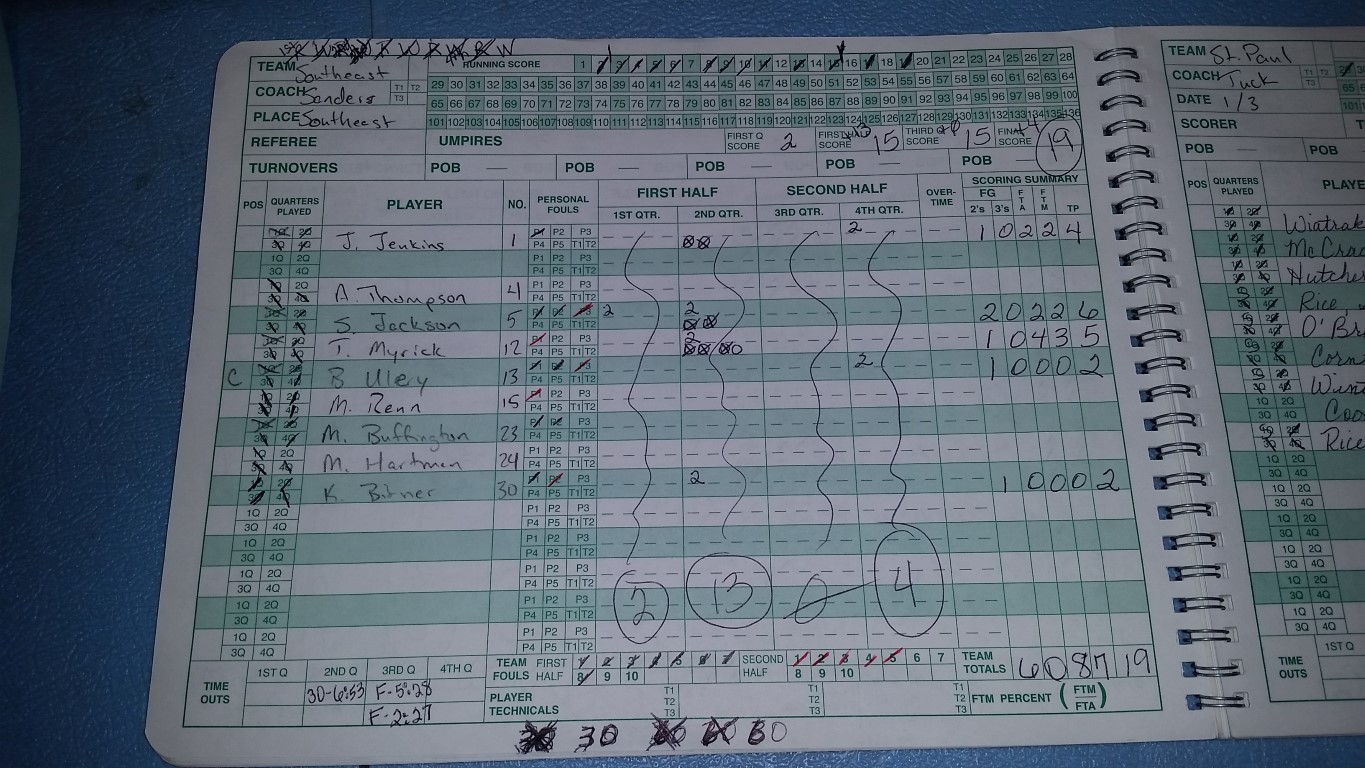 TEAM Southeast RUNNING SCORE 1 2 3 4 5 6 7 8 9 10 11 12 13 14 15 16 17 18 19 20 21 22 23 24 25 26 27 28
COACH Sanders T1 T2 T3 29 30 31 32 33 34 35 36 37 38 39 40 41 42 43 44 45 46 47 48 49 50 51 52 53 54 55 56 57 58 59 60 61 62 63 64
65 66 67 68 69 70 71 72 73 74 75 76 77 78 79 80 81 82 83 84 85 86 87 88 89 90 91 92 93 94 95 96 97 98 99 100
PLACE Southeast 101 102 103 104 105 106 107 108 109 110 111 112 113 114 115 116 117 118 119 120 121 122 123 124 125 126 127 128 129 130 131 132 133 134 135 136
REFEREE UMPIRES FIRST Q SCORE 2 FIRST SCORE 15 THIRD Q SCORE 15 FINAL SCORE 19
TURNOVERS POB — POB — POB — POB — POB —
POS QUARTERS PLAYED PLAYER NO. PERSONAL FOULS FIRST HALF SECOND HALF OVER-TIME SCORING SUMMARY
1ST QTR. 2ND QTR. 3RD QTR. 4TH QTR. FG 2's 3's FTA FTM TP
J. Jenkins 1 P1 P2 P3 P4 P5 T1 T2 2 1 0 2 2 4
1Q 2Q 3Q 4Q P1 P2 P3 P4 P5 T1 T2
A. Thompson 4 P1 P2 P3 P4 P5 T1 T2
S. Jackson 5 P1 P2 P3 P4 P5 T1 T2 2 2 2 0 2 2 6
T. Myrick 12 P1 P2 P3 P4 P5 T1 T2 2 1 0 4 3 5
C B Uley 13 P1 P2 P3 P4 P5 T1 T2 2 1 0 0 0 2
M. Renn 15 P1 P2 P3 P4 P5 T1 T2
M. Buffington 23 P1 P2 P3 P4 P5 T1 T2
M. Hartman 24 P1 P2 P3 P4 P5 T1 T2
K. Bitner 30 P1 P2 P3 P4 P5 T1 T2 2 1 0 0 0 2
1Q 2Q 3Q 4Q P1 P2 P3 P4 P5 T1 T2
1Q 2Q 3Q 4Q P1 P2 P3 P4 P5 T1 T2
1Q 2Q 3Q 4Q P1 P2 P3 P4 P5 T1 T2 2 13 0 4
1Q 2Q 3Q 4Q P1 P2 P3 P4 P5 T1 T2
1Q 2Q 3Q 4Q P1 P2 P3 P4 P5 T1 T2
TIME OUTS 1ST Q 2ND Q 3RD Q 4TH Q
30-6:53 F-5:28
F-2:27
TEAM FOULS FIRST HALF 1 2 3 4 5 6 7 8 9 10 SECOND HALF 1 2 3 4 5 6 7 8 9 10 TEAM TOTALS 6 0 8 7 19
PLAYER TECHNICALS T1 T2 T3 T1 T2 T3 T1 T2 T3 FTM PERCENT (FTM FTA)
30
TEAM St. Paul
COACH Tuck T1 T2 T3
DATE 1/3
SCORER
POB — POB
POS QUARTERS PLAYED
Mc
Rice
O'B
Corn
Rice
TIME OUTS 1ST Q